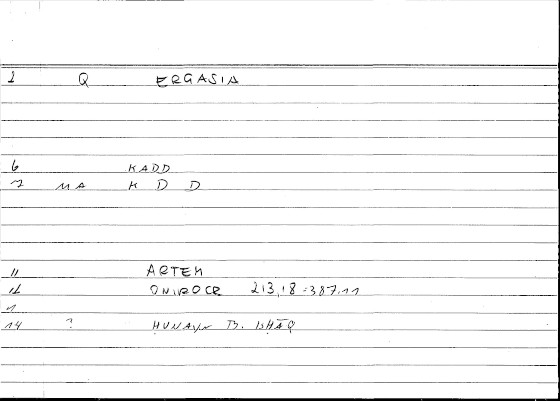 1 Q ERGASIA
6 KADD
7 MA K D D
11 ARTEM
12 ONIROCR 213,18:387,11
1
14 ? ḤUNAYN B. ISḤĀQ